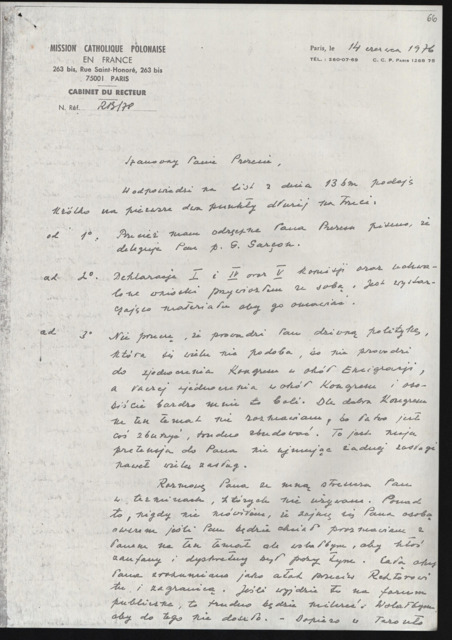 66
MISSION CATHOLIQUE POLONAISE
EN FRANCE
263 bis, Rue Saint-Honoré, 263 bis
75001 PARIS
CABINET DU RECTEUR
N. Réf.
Paris, le 14 czerwca 1976
TÉL. : 260-07-69 C. C. P. Paris 1268 75
Szanowny Panie Prezesie,
W odpowiedzi na list z dnia 13 bm. podaję
krótko na pierwsze dwa punkty dłużej na trzeci.
ad 1°. Przecież mam odręczne Pana Prezesa pismo, że
deleguje Pan p. G. Sargon.
ad 2°. Deklaracje I i IV oraz V Komisji oraz uchwa-
lone wnioski przywiozłem ze sobą, jest wystar-
czająco materiału aby go omawiać.
ad 3° Nie powiem, że prowadzi Pan dziwną politykę,
która się wielu nie podoba, bo nie prowadzi
do zjednoczenia Kongresu wokół Emigracji,
a raczej zjednoczenia wokół Kongresu i oso-
biście bardzo mnie to boli. Dla dobra Kongresu
na ten temat nie rozmawiam, bo łatwo już
coś zburzyć, trudno zbudować. To jest moja
pretensja do Pana nie ujmując żadnej zasługi
nawet wielu zasług.
Rozmowę Pana ze mną streszcza Pan
w terminach, których nie używam. Ponad
to, nigdy nie mówiłem, że zajmę się Pana osobą
owszem jeśli Pan będzie chciał porozmawiam z
Panem na ten temat ale wolałbym, aby ktoś
zaufany i dyskretny był przy tym. Całą akcję
Pana rozumiem jako atak przeciw Rektorowi
tu i zagranicą. Jeśli wyjdzie to na forum
publiczne, to trudno będzie milczeć. Wolałbym,
aby do tego nie doszło. - Dopiero w Toronto